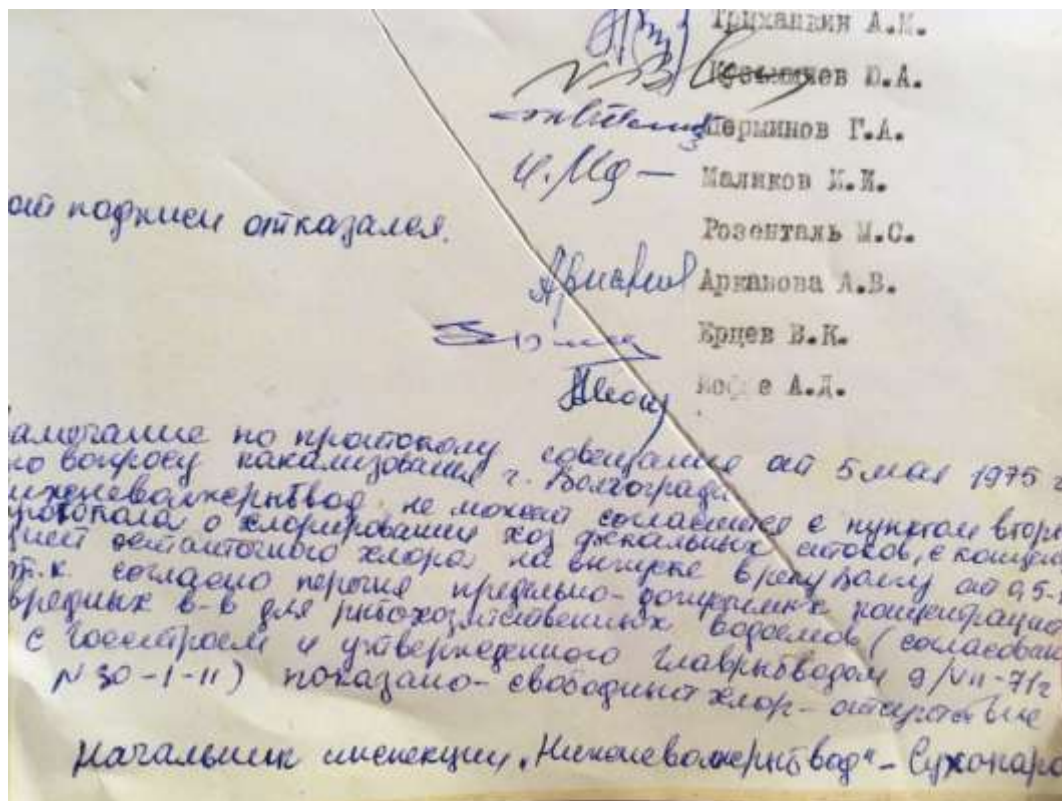 Трихапкин А.М.
Ю.А.
Перминов Г.А.
Маликов И.И.
от подписи отказался.
Розенталь М.С.
Арканова А.В.
Ерцев В.К.
А.Д.
амечание по протоколу совещания от 5 мая 1975 г
по вопросу канализования г. Волгограда
ижневолжрыбвод не может согласиться с пунктом вторым
протокола о хлорировании хоз фекальных стоков, с концен
цией остаточного хлора на выпуске в реку Волгу от 0,5-
т.к. согласно перечня предельно-допустимых концентраций
вредных в-в для рыбохозяйственных водоемов (согласован
с Госстроем и утвержденного Главрыбводом 9/VII-71г
N 30-1-11) показано- свободный хлор- отсутствие
Начальник инспекции „Нижневолжрыбвод"- Сухопаро